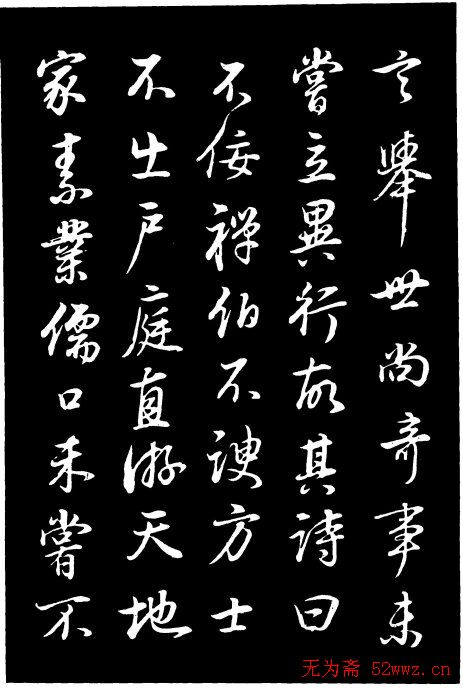 言舉世尚奇事未
嘗立異行故其詩曰
不佞禪伯不諛方士
不出戶庭直游天地
家素業儒口未嘗不
无为斋 52wwz.cn